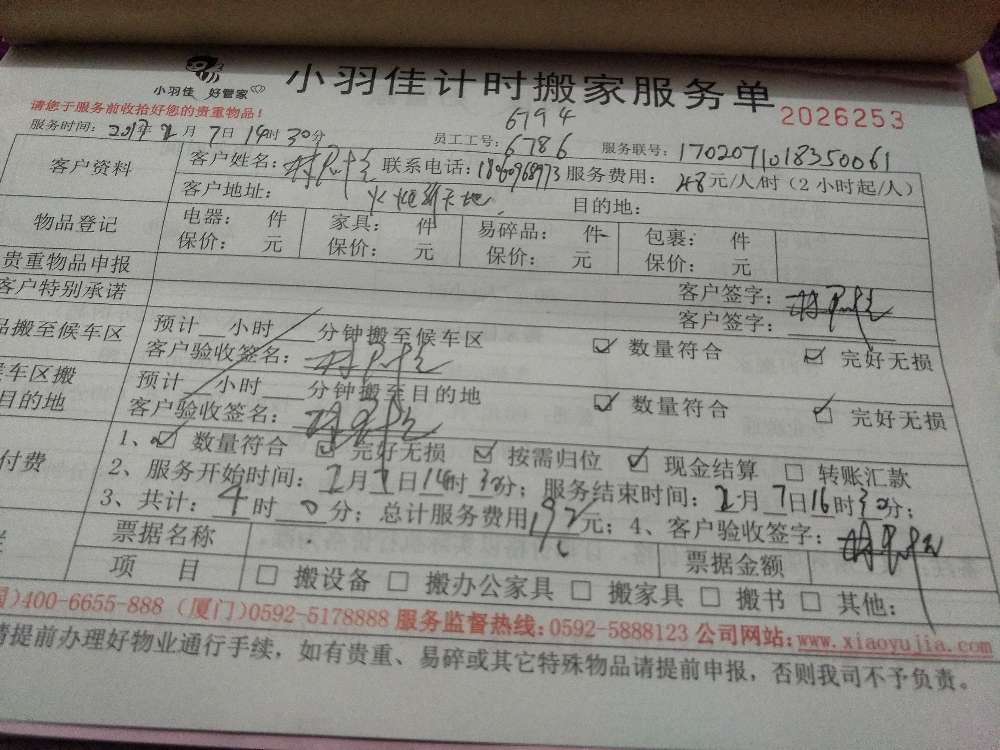 小羽佳计时搬家服务单
小羽佳 好管家
2026253
请您于服务前收拾好您的贵重物品！
6794
服务时间：2017年2月7日14时30分 员工工号：6786 服务联号：1702071018350061
客户资料 客户姓名： 联系电话： 服务费用：48元/人/时（2小时起/人）
客户地址： 火炬新天地 目的地：
物品登记 电器： 件 家具： 件 易碎品： 件 包裹： 件
保价： 元 保价： 元 保价： 元 保价： 元
贵重物品申报 客户签字：
客户特别承诺 客户签字：
品搬至候车区 预计 小时 分钟搬至候车区 ☑ 数量符合 ☑ 完好无损
客户验收签名：
车区搬 预计 小时 分钟搬至目的地 ☑ 数量符合 ☑ 完好无损
目的地 客户验收签名：
付费 1、☑ 数量符合 ☑ 完好无损 ☑ 按需归位 ☑ 现金结算 □ 转账汇款
2、服务开始时间：2月7日14时30分；服务结束时间：2月7日16时30分；
3、共计：4时0分；总计服务费用192元；4、客户验收签字：
票据名称 票据金额
项 目 □ 搬设备 □ 搬办公家具 □ 搬家具 □ 搬书 □ 其他：
)400-6655-888（厦门)0592-5178888 服务监督热线:0592-5888123 公司网站:www.xiaoyujia.com
请提前办理好物业通行手续，如有贵重、易碎或其它特殊物品请提前申报，否则我司不予负责。